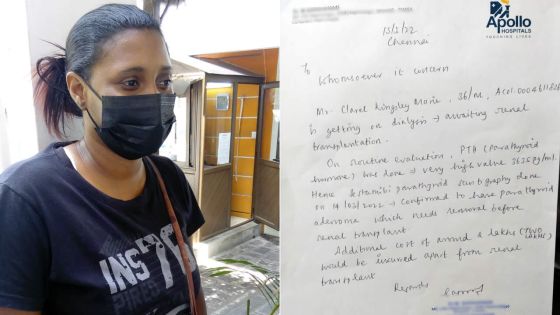 INST
Apollo
HOSPITALS
TOUCHING LIVES
Chennai
To
Whomsoever it concern
Mr. Clarel Kingsley Marie, 36/m,
is getting on dialysis → awaiting renal
transplantation.
On Routine evaluation, PTH (parathyroid
hormone) was done → very high value
Hence Sestamibi parathyroid scintography done
on 14/03/2022 → confirmed to have parathyroid
adenoma which needs removal before
renal transplant.
Additional cost of around 2 lakhs (TWO
LAKHS)
would be incurred apart from renal
transplant
Regards